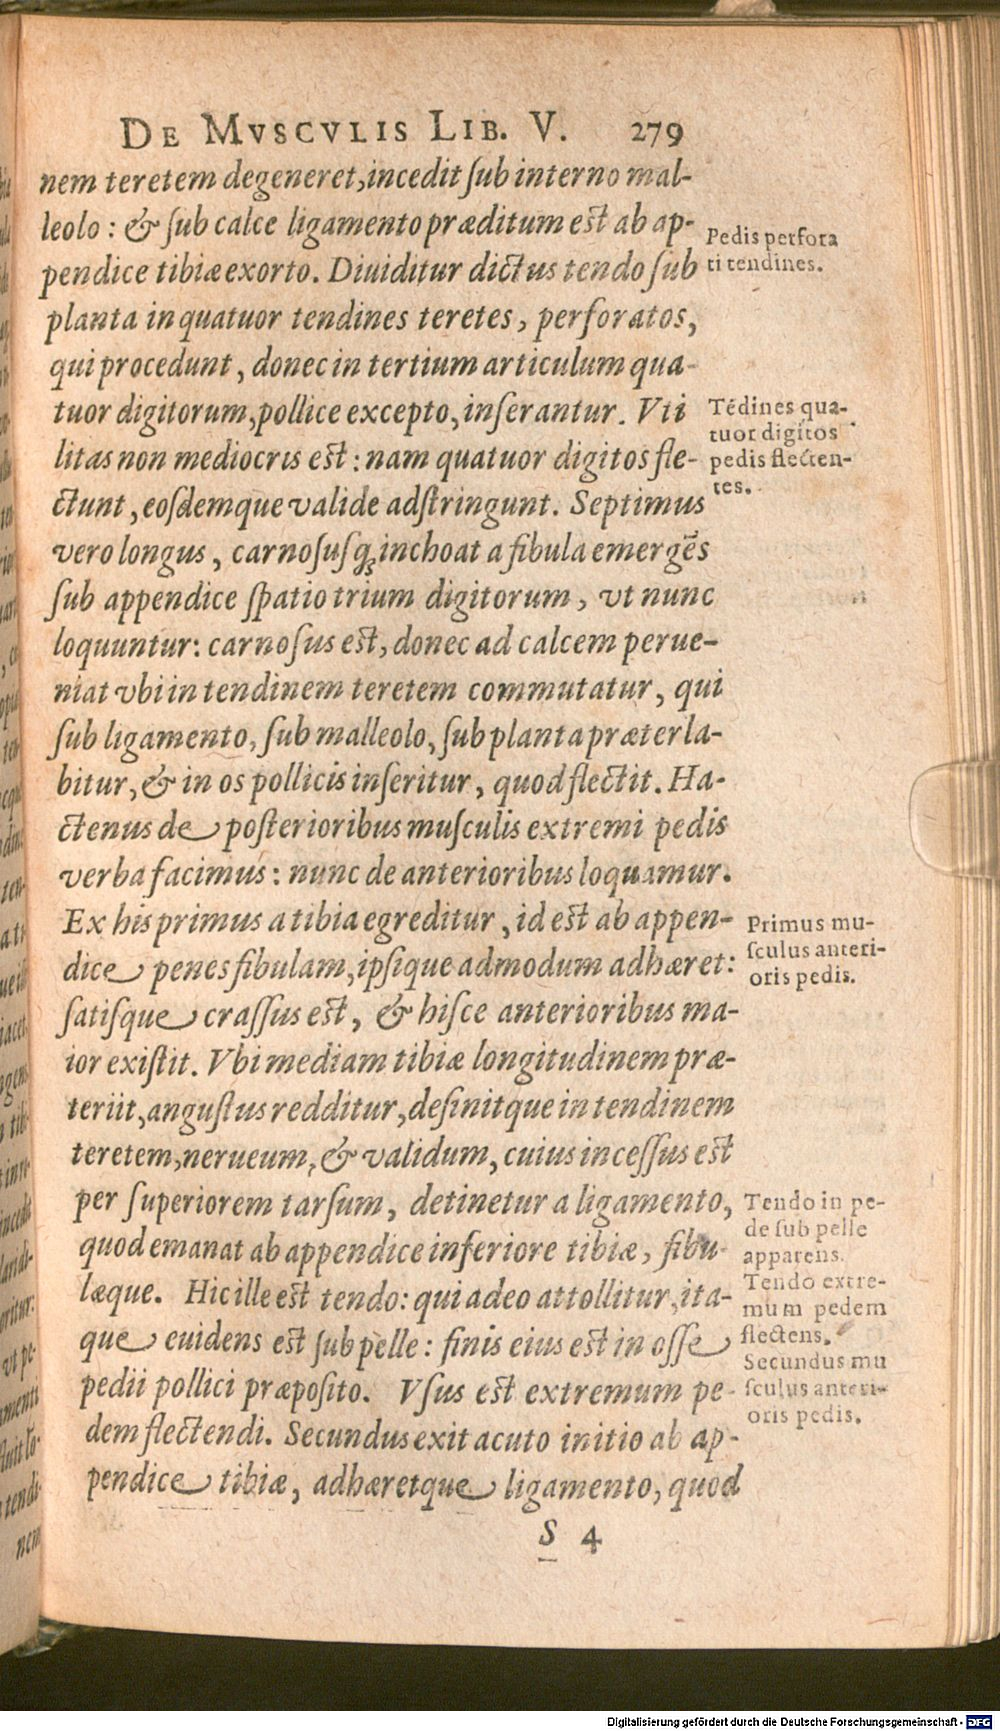 DE MVSCVLIS LIB. V. 279
nem teretem degeneret, incedit ſub interno mal-
leolo: & ſub calce ligamento præditum est ab ap-
pendice tibiæ exorto. Diuiditur dictus tendo ſub
planta in quatuor tendines teretes, perforatos,
qui procedunt, donec in tertium articulum qua-
tuor digitorum, pollice excepto, inſerantur. Vti
litas non mediocris est: nam quatuor digitos fle-
ctunt, eoſdemque valide adſtringunt. Septimus
vero longus, carnoſusq; inchoat a fibula emergẽs
ſub appendice ſpatio trium digitorum, vt nunc
loquuntur: carnoſus est, donec ad calcem perue-
niat vbi in tendinem teretem commutatur, qui
ſub ligamento, ſub malleolo, ſub planta præterla-
bitur, & in os pollicis inſeritur, quod flectit. Ha-
ctenus de poſterioribus muſculis extremi pedis
verba facimus: nunc de anterioribus loquamur.
Ex his primus a tibia egreditur, id est ab appen-
dice penes fibulam, ipſique admodum adhæret:
ſatiſque craſſus est, & hiſce anterioribus ma-
ior exiſtit. Vbi mediam tibiæ longitudinem præ-
teriit, anguſtus redditur, deſinitque in tendinem
teretem, nerueum, & validum, cuius inceſſus est
per ſuperiorem tarſum, detinetur a ligamento,
quod emanat ab appendice inferiore tibiæ, fibu-
læque. Hic ille est tendo: qui adeo attollitur, ita-
que euidens est ſub pelle: finis eius est in oſſe
pedii pollici præpoſito. Vſus est extremum pe-
dem flectendi. Secundus exit acuto initio ab ap-
pendice tibiæ, adhæretque ligamento, quod
S 4
Pedis perfora
ti tendines.
Tẽdines qua-
tuor digitos
pedis flecten-
tes.
Primus mu-
ſculus anteri-
oris pedis.
Tendo in pe-
de ſub pelle
apparens.
Tendo extre-
mum pedem
flectens.
Secundus mu
ſculus anteri-
oris pedis.
Digitalisierung gefördert durch die Deutsche Forschungsgemeinschaft - DFG